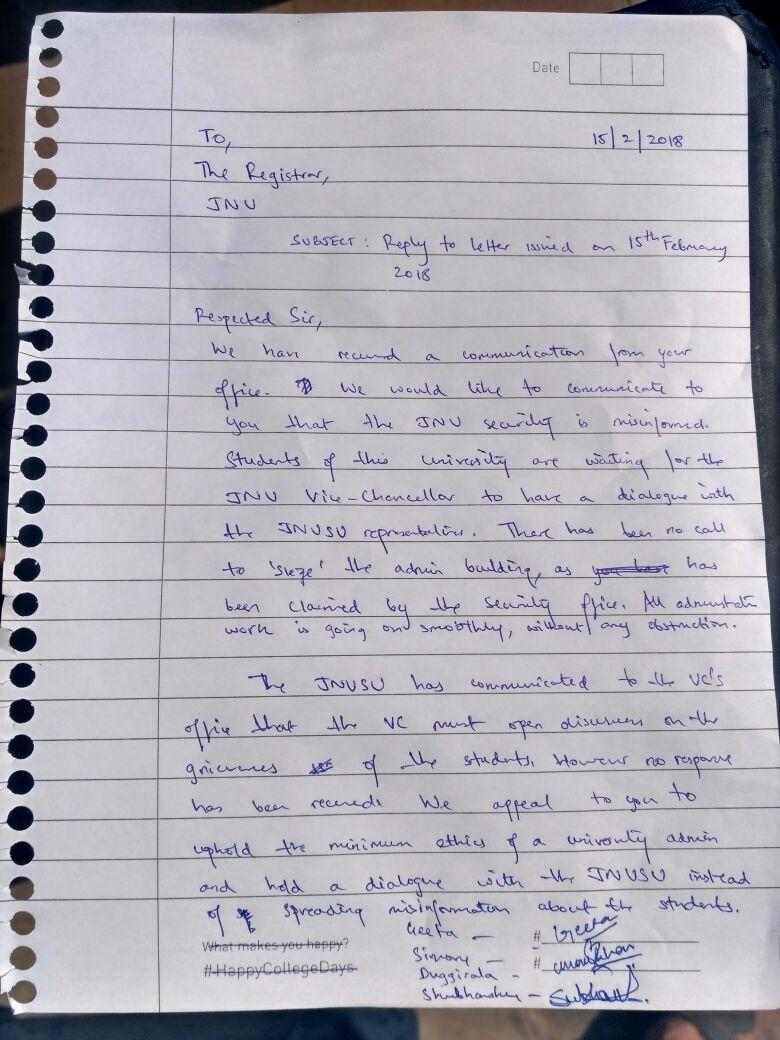 Date
To,
15/2/2018
The Registrar,
JNU
SUBJECT: Reply to letter issued on 15th February
2018
Respected Sir,
We have received a communication from your
office. We would like to communicate to
you that the JNU security is misinformed.
Students of this university are waiting for the
JNU Vice-Chancellor to have a dialogue with
the JNUSU representatives. There has been no call
to 'sieze' the admin building, as has
been claimed by the security office. All
work is going on smoothly, without any obstruction.
The JNUSU has communicated to the VC's
office that the VC must open discussions on the
grievances of the students. However no response
has been received. We appeal to you to
uphold the minimum ethics of a university admin
and hold a dialogue with the JNUSU instead
of spreading misinformation about the students.
What makes you happy?
#HappyCollegeDays
Geeta - # Geeta
Simone - #
Duggirala -
Shubhanshu -